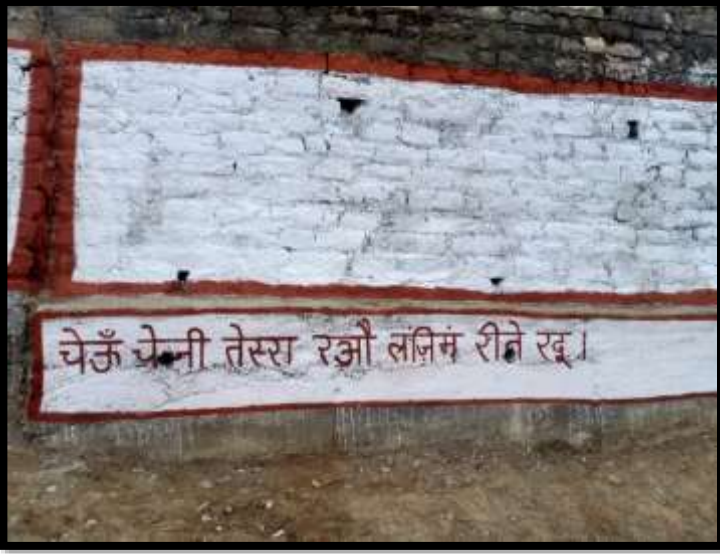 चेऊँ चेनी तेस्रा रऔ लंज़िमं रीने रदू।